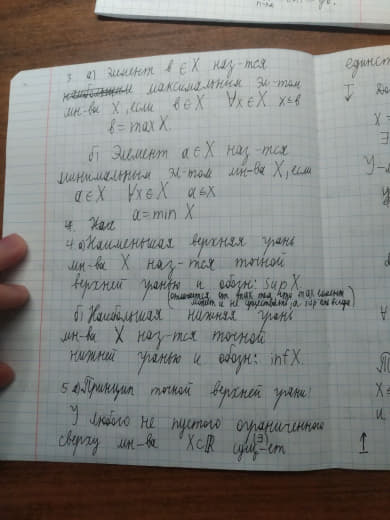 3 а) Элемент в ∈ X наз-тся
наибольшим максимальным эл-том
мн-ва X, если в ∈ X ∀x∈X x≤в
в = max X.
б) Элемент a ∈ X наз-тся
минимальным эл-том мн-ва X, если
a ∈ X ∀x∈X a≤x
a = min X
4. Наи
4 а) Наименьшая верхняя грань
мн-ва X наз-тся точной
верхней гранью и обозн: sup X.
(отличается от max тем, что max элемент
может и не существовать, а sup есть всегда)
б) Наибольшая нижняя грань
мн-ва X наз-тся точной
нижней гранью и обозн: inf X.
5 а) Принцип точной верхней грани:
У любого не пустого ограниченного
сверху мн-ва X⊂ℝ сущ-ет (∃)
единст
I
X =
∃
У
X ≤
и